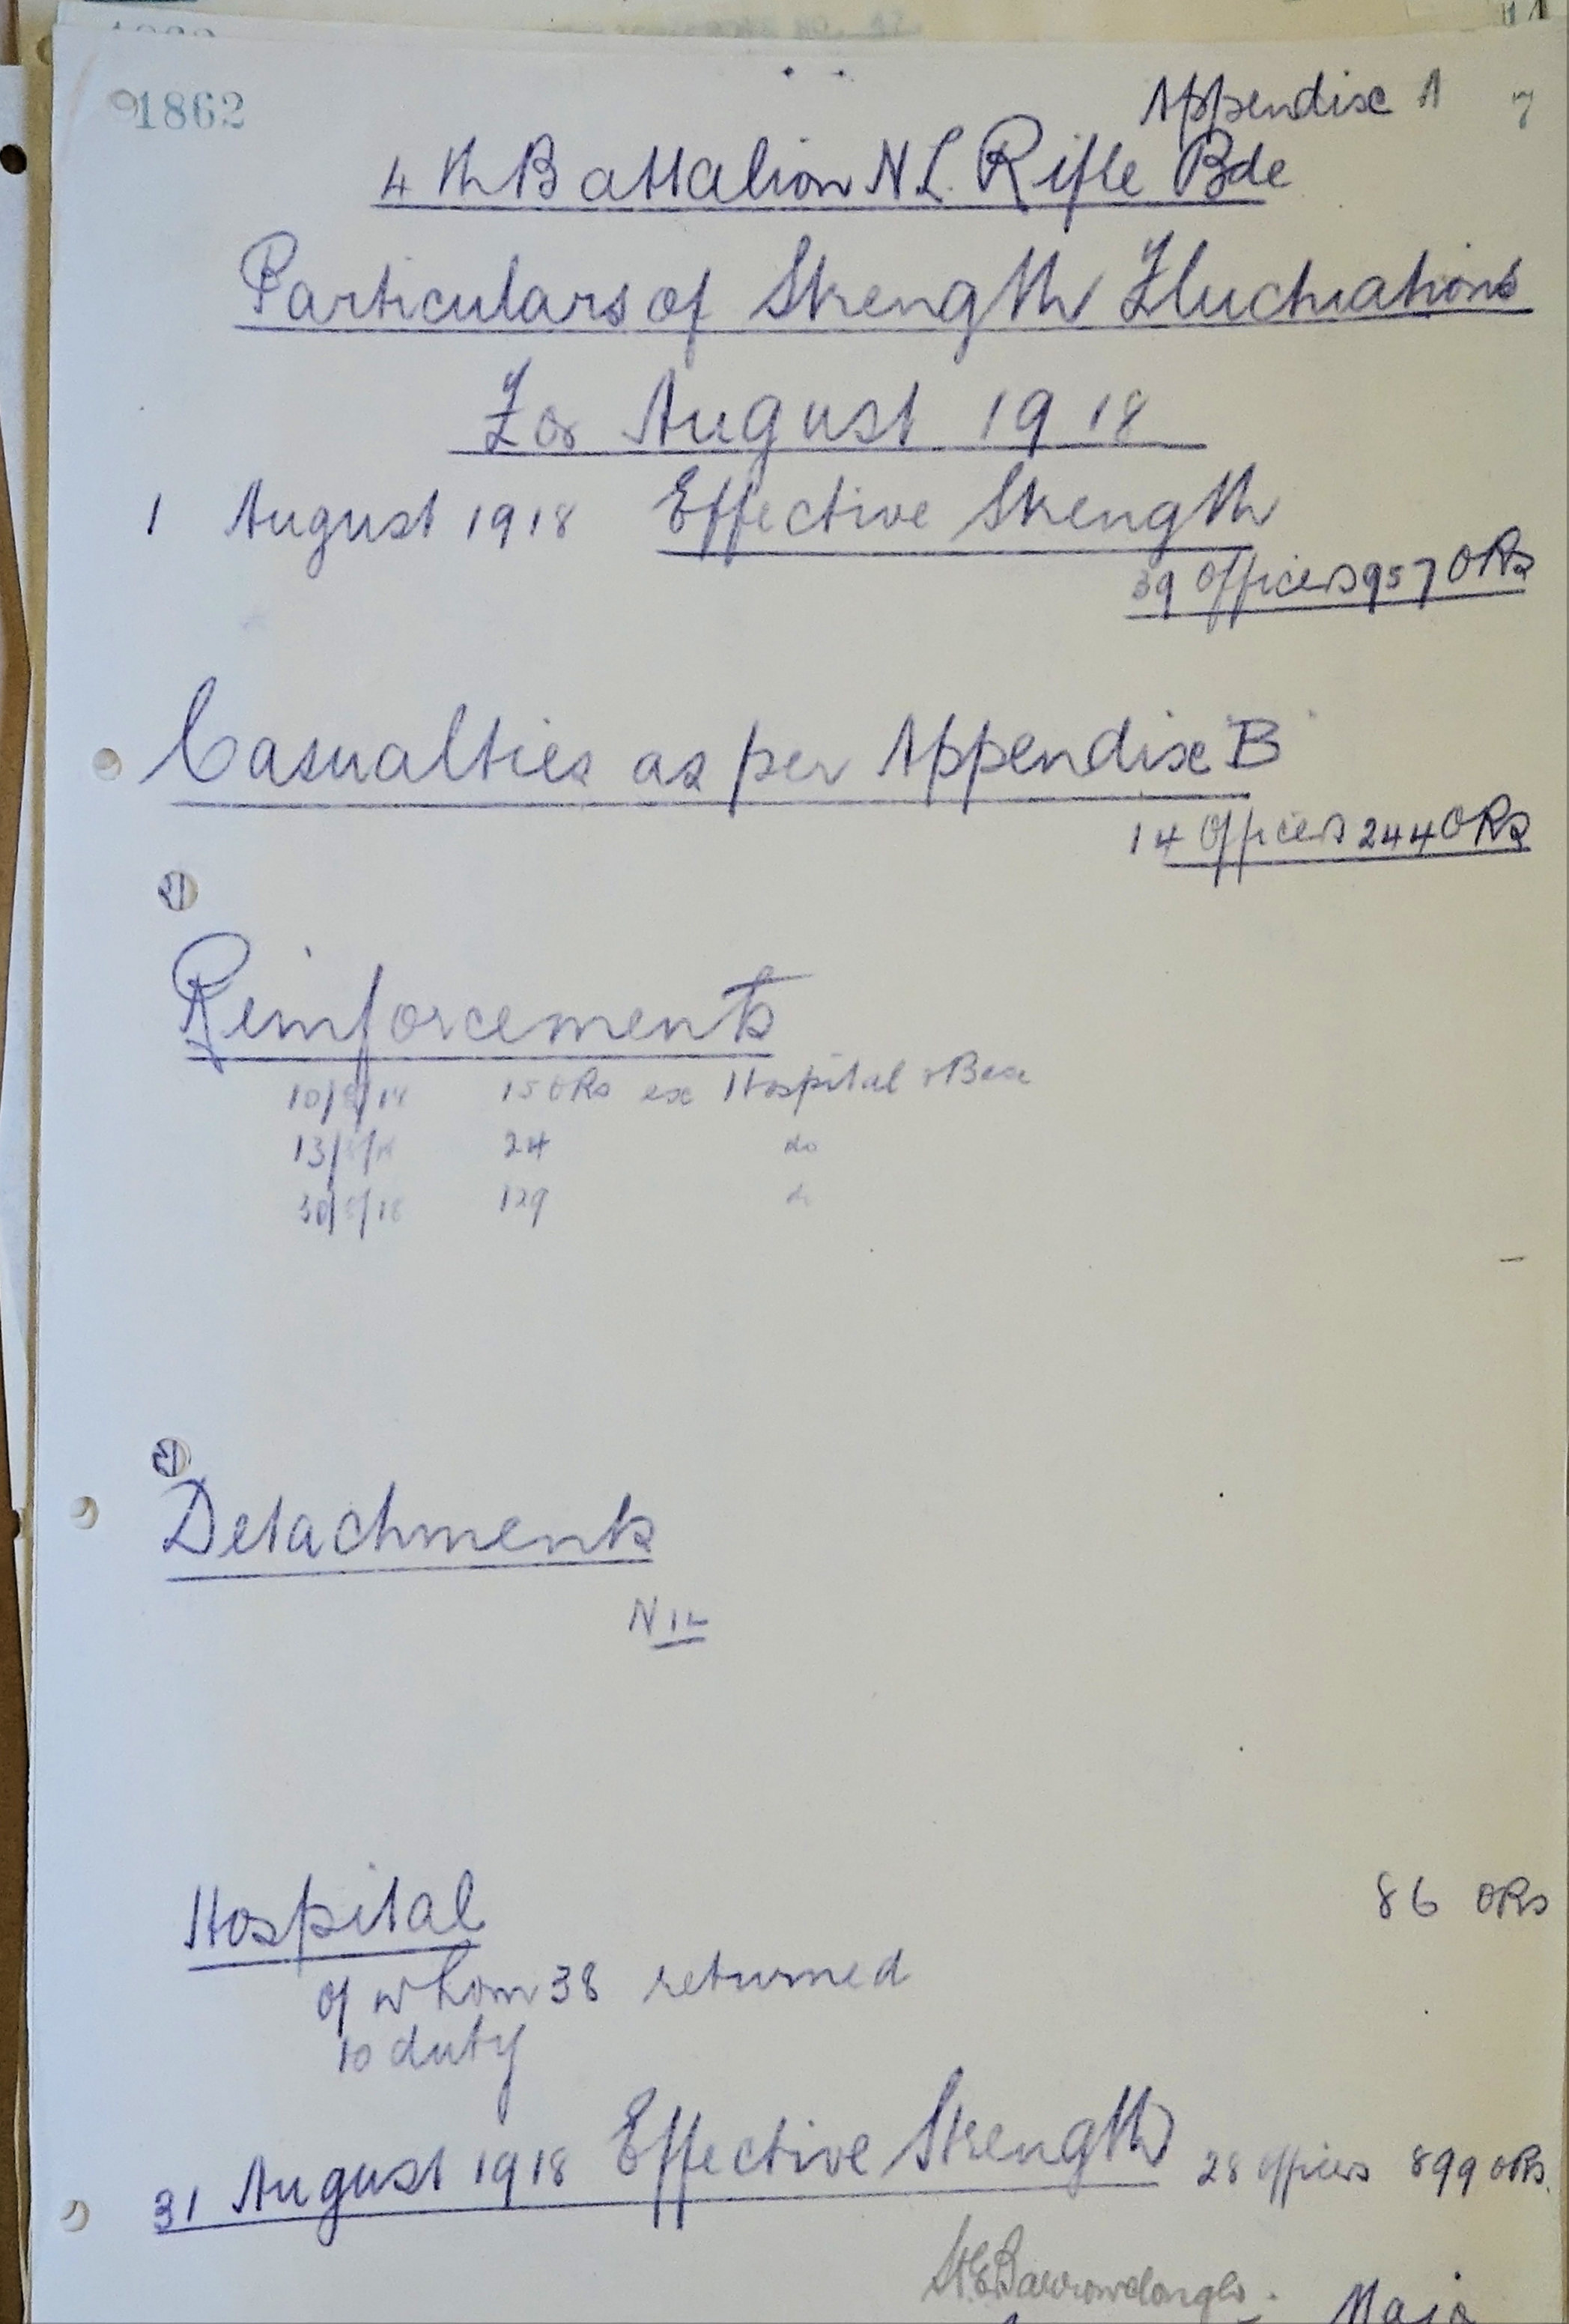 1862
Appendix A 7
4th Battalion N Z. Rifle Bde
Particulars of Strength Fluctuations
For August 1918
1 August 1918 Effective Strength
39 Officers 957 ORs
Casualties as per Appendix "B"
14 Officers 244 ORs
Reinforcements
10/8/18 15 ORs ex Hospital & Base
13/8/18 24 do
30/8/18 129
Detachments
NIL
Hospital 86 ORs
of whom 38 returned
to duty
31 August 1918 Effective Strength 28 officers 899 ORs.
H.E. Barrowclough. Major